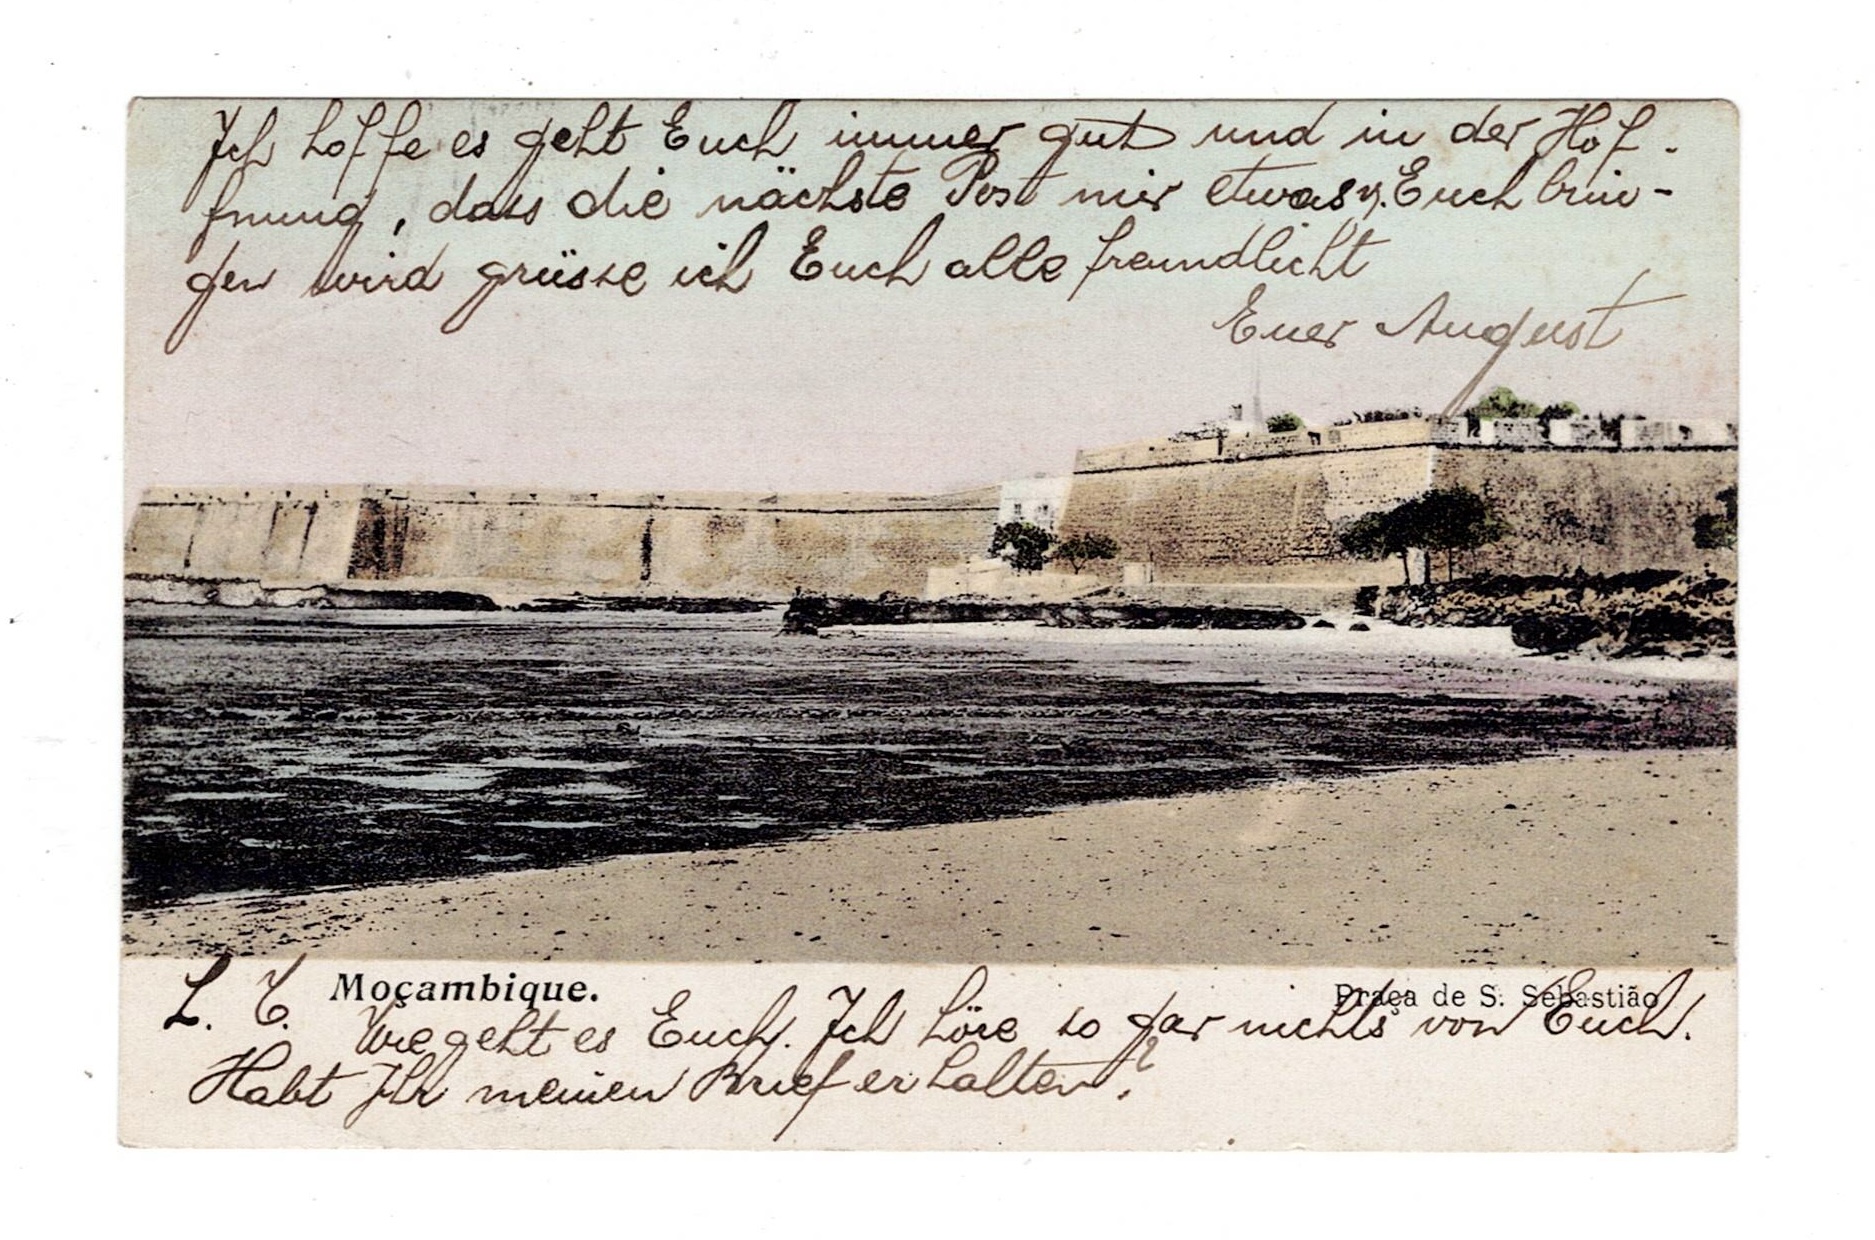 Ich hoffe es geht Euch immer gut und in der Hof-
fnung, dass die nächste Post mir etwas v. Euch brin-
gen wird grüsse ich Euch alle freundlicht
Euer August
L. T. Moçambique. Praça de S. Sebastião
Wie geht es Euch. Ich höre so gar nichts von Euch.
Habt Ihr meinen Brief erhalten?